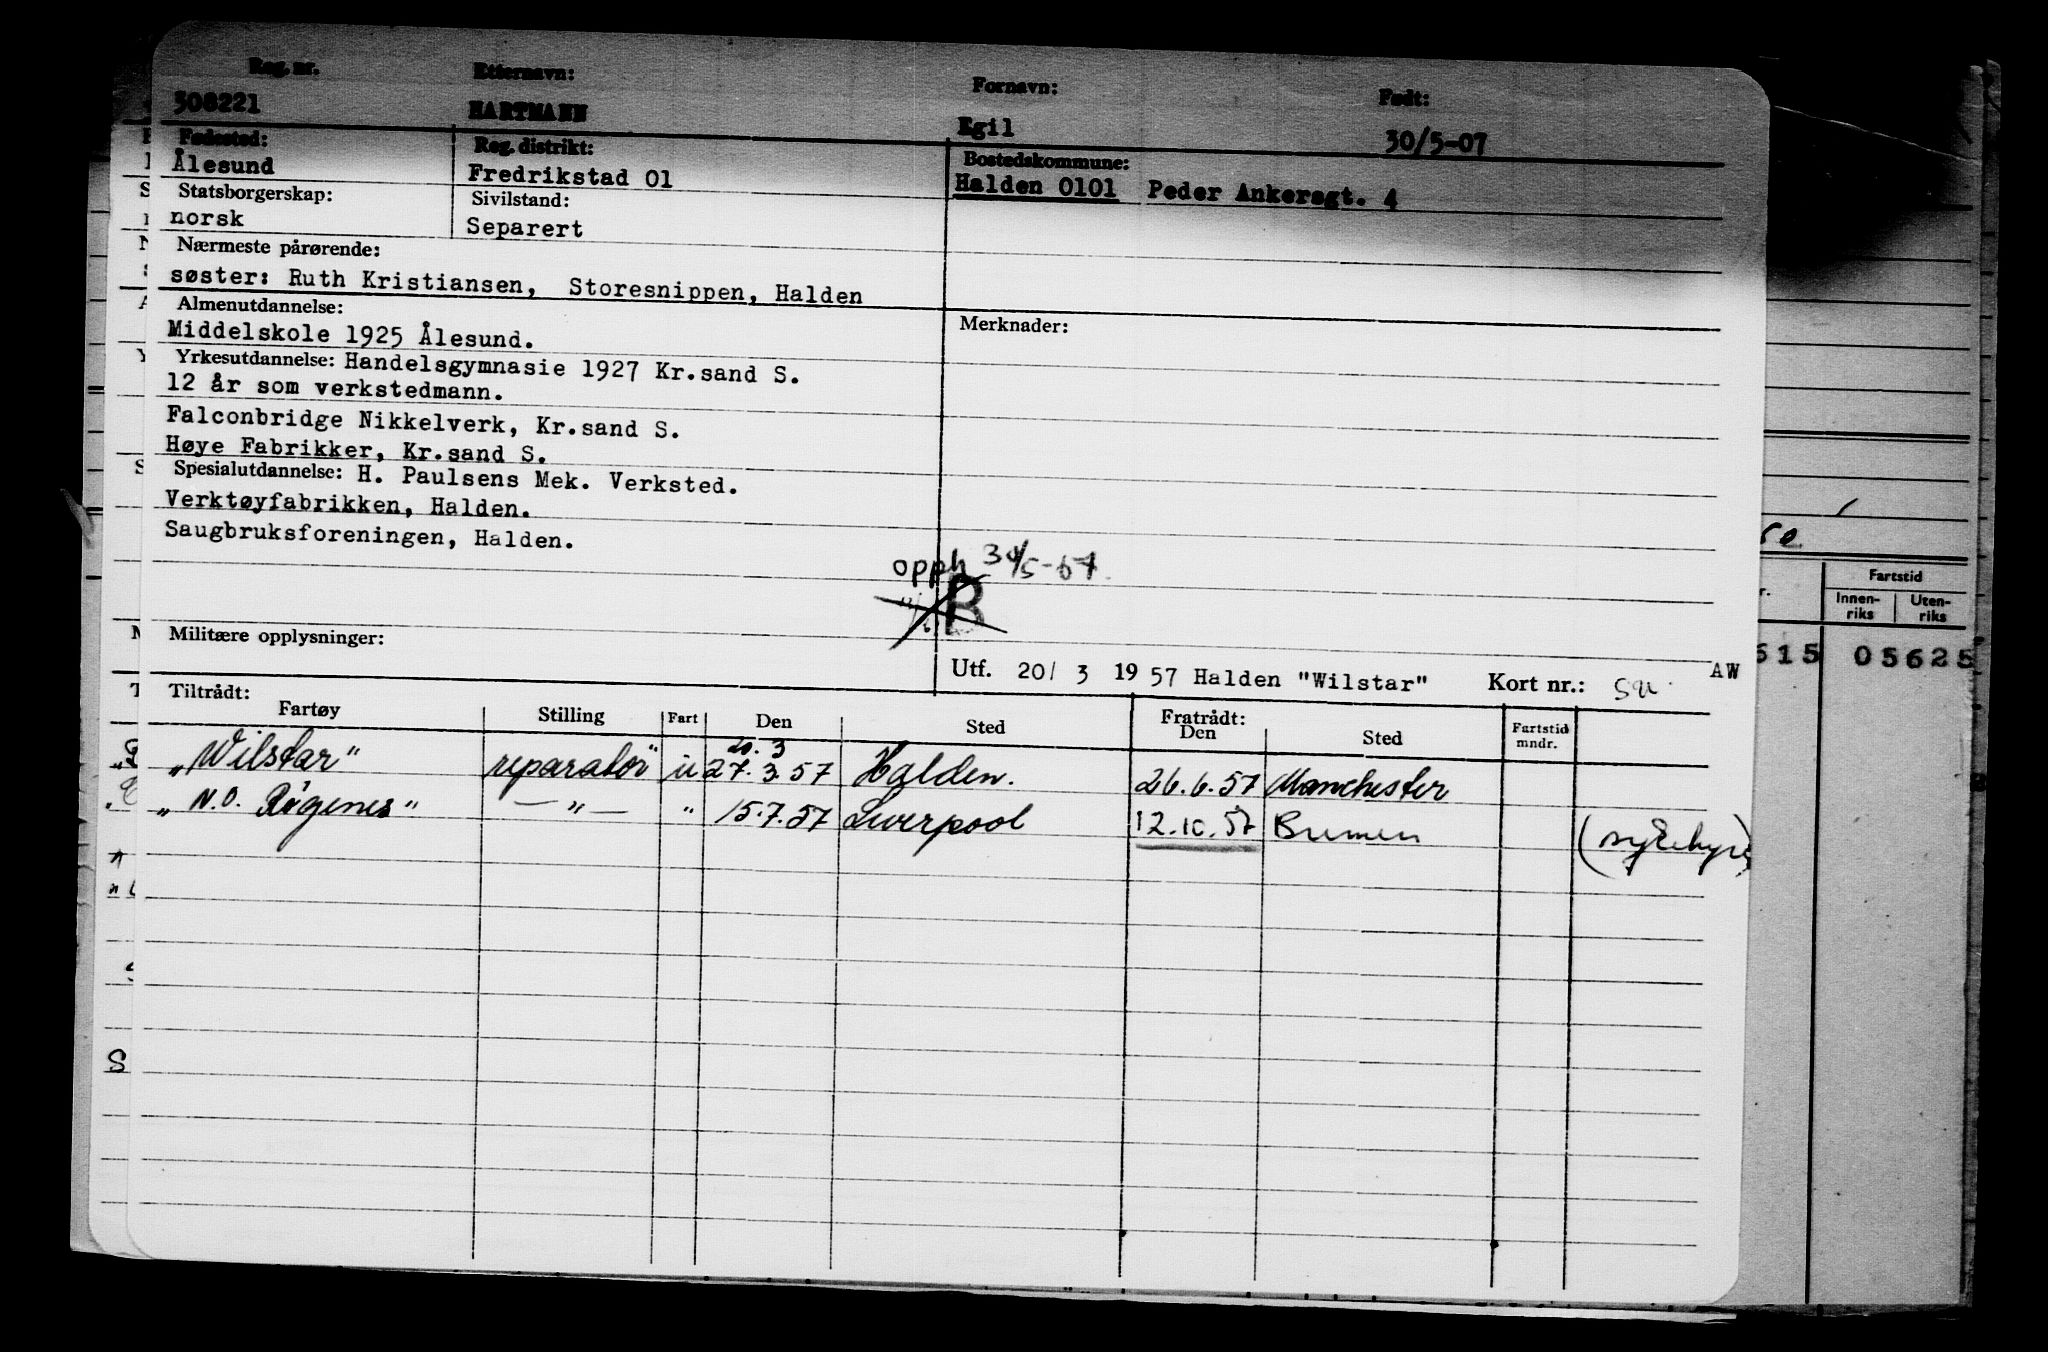 Reg. nr. Etternavn: Fornavn: Født:
308221 HARTMANN Egil 30/5-07
Fødested: Reg. distrikt: Bostedskommune:
Ålesund Fredrikstad 01 Halden 0101 Peder Ankersgt. 4
Statsborgerskap: Sivilstand:
norsk Separert
Nærmeste pårørende:
søster: Ruth Kristiansen, Storesnippen, Halden
Almenutdannelse: Merknader:
Middelskole 1925 Ålesund.
Yrkesutdannelse: Handelsgymnasie 1927 Kr.sand S.
12 år som verkstedmann.
Falconbridge Nikkelverk, Kr.sand S.
Høye Fabrikker, Kr.sand S.
Spesialutdannelse: H. Paulsens Mek. Verksted.
Verktøyfabrikken, Halden.
Saugbruksforeningen, Halden.
opph 30/5-67
B
Militære opplysninger:
Utf. 20/ 3 1957 Halden "Wilstar" Kort nr.: AW
Tiltrådt: Fratrådt:
Fartøy Stilling Fart Den Sted Den Sted Fartstid mndr.
20. 3
„Wilstar" reparatør u 27.3.57 Halden. 26.6.57 Manchester
„N.O. Røgenes" — „ — " 15.7.57 Liverpool 12.10.57 Bremen (sykehyre)
Fartstid
Innen-riks Uten-riks
615 05625